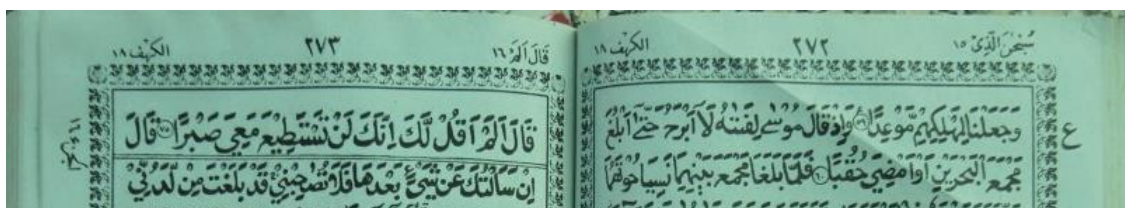 سُبْحٰنَ الَّذِىْ ١٥
٢٧٢
الكهف ١٨
وَجَعَلْنَا لِمَهْلِكِهِمْ مَّوْعِدًا ۝٥٩ وَاِذْ قَالَ مُوْسٰى لِفَتٰىهُ لَاۤ اَبْرَحُ حَتّٰۤى اَبْلُغَ
ع
مَجْمَعَ الْبَحْرَيْنِ اَوْ اَمْضِىَ حُقُبًا ۝٦٠ فَلَمَّا بَلَغَا مَجْمَعَ بَيْنِهِمَا نَسِيَا حُوْتَهُمَا
قَالَ اَلَمْ ١٦
٢٧٣
الكهف ١٨
قَالَ اَلَمْ اَقُلْ لَّكَ اِنَّكَ لَنْ تَسْتَطِيْعَ مَعِىَ صَبْرًا ۝٧٥ قَالَ
اِنْ سَاَلْتُكَ عَنْ شَىْءٍۢ بَعْدَهَا فَلَا تُصٰحِبْنِىْ قَدْ بَلَغْتَ مِنْ لَّدُنِّىْ